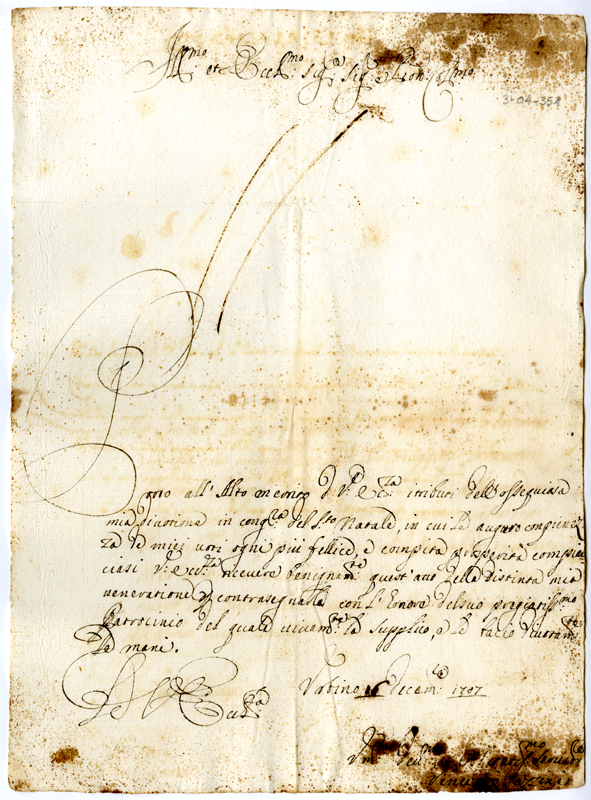 Ill.mo et Ecc.mo Sig.r Sig.r e Pron Col.mo
3-04-358
Porto all'Alto V.ra Ecc.za i tributi dell'ossequiosa
mia divotione in cong.ra del S.to Natale, in cui le auguro
za de miei voti ogni più fellice, e compita prosperità compiac
ciasi V.ra Ecc.za ricevere benignam.te quest'atto della distinta mia
veneratione, contrasegnat con l'honore del suo pregiatiss.mo
Patrocinio del quale vivam.te la supplico, e le bacio divotam.te
le mani.
Urbino Decem.re 1707
Ecc.za